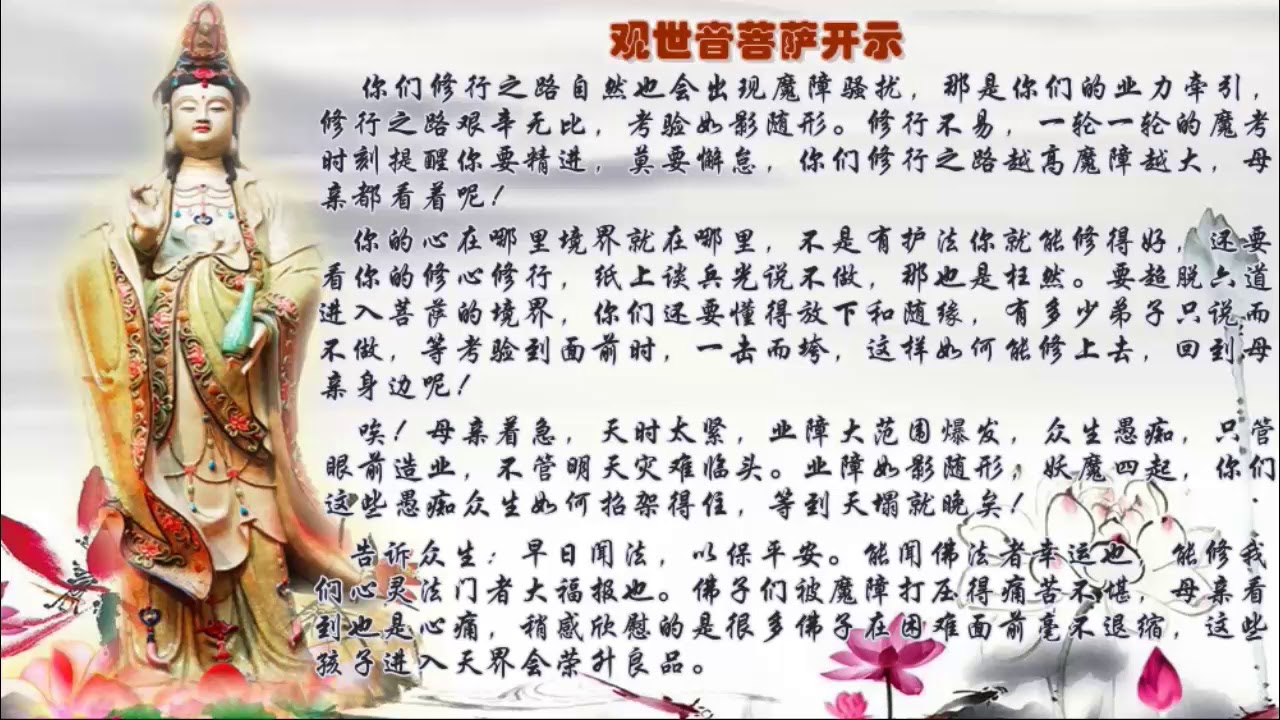 观世音菩萨开示
你们修行之路自然也会出现魔障骚扰，那是你们的业力牵引，
修行之路艰辛无比，考验如影随形。修行不易，一轮一轮的魔考
时刻提醒你要精进，莫要懈怠，你们修行之路越高魔障越大，母
亲都看着呢！
你的心在哪里境界就在哪里，不是有护法你就能修得好，还要
看你的修心修行，纸上谈兵光说不做，那也是枉然。要超脱六道
进入菩萨的境界，你们还要懂得放下和随缘，有多少弟子只说而
不做，等考验到面前时，一击而垮，这样如何能修上去，回到母
亲身边呢！
唉！母亲着急，天时太紧，业障大范围爆发，众生愚痴，只管
眼前造业，不管明天灾难临头。业障如影随形，妖魔四起，你们
这些愚痴众生如何招架得住，等到天塌就晚矣！
告诉众生：早日闻法，以保平安。能闻佛法者幸运也，能修我
们心灵法门者大福报也。佛子们被魔障打压得痛苦不堪，母亲看
到也是心痛，稍感欣慰的是很多佛子在困难面前毫不退缩，这些
孩子进入天界会荣升良品。